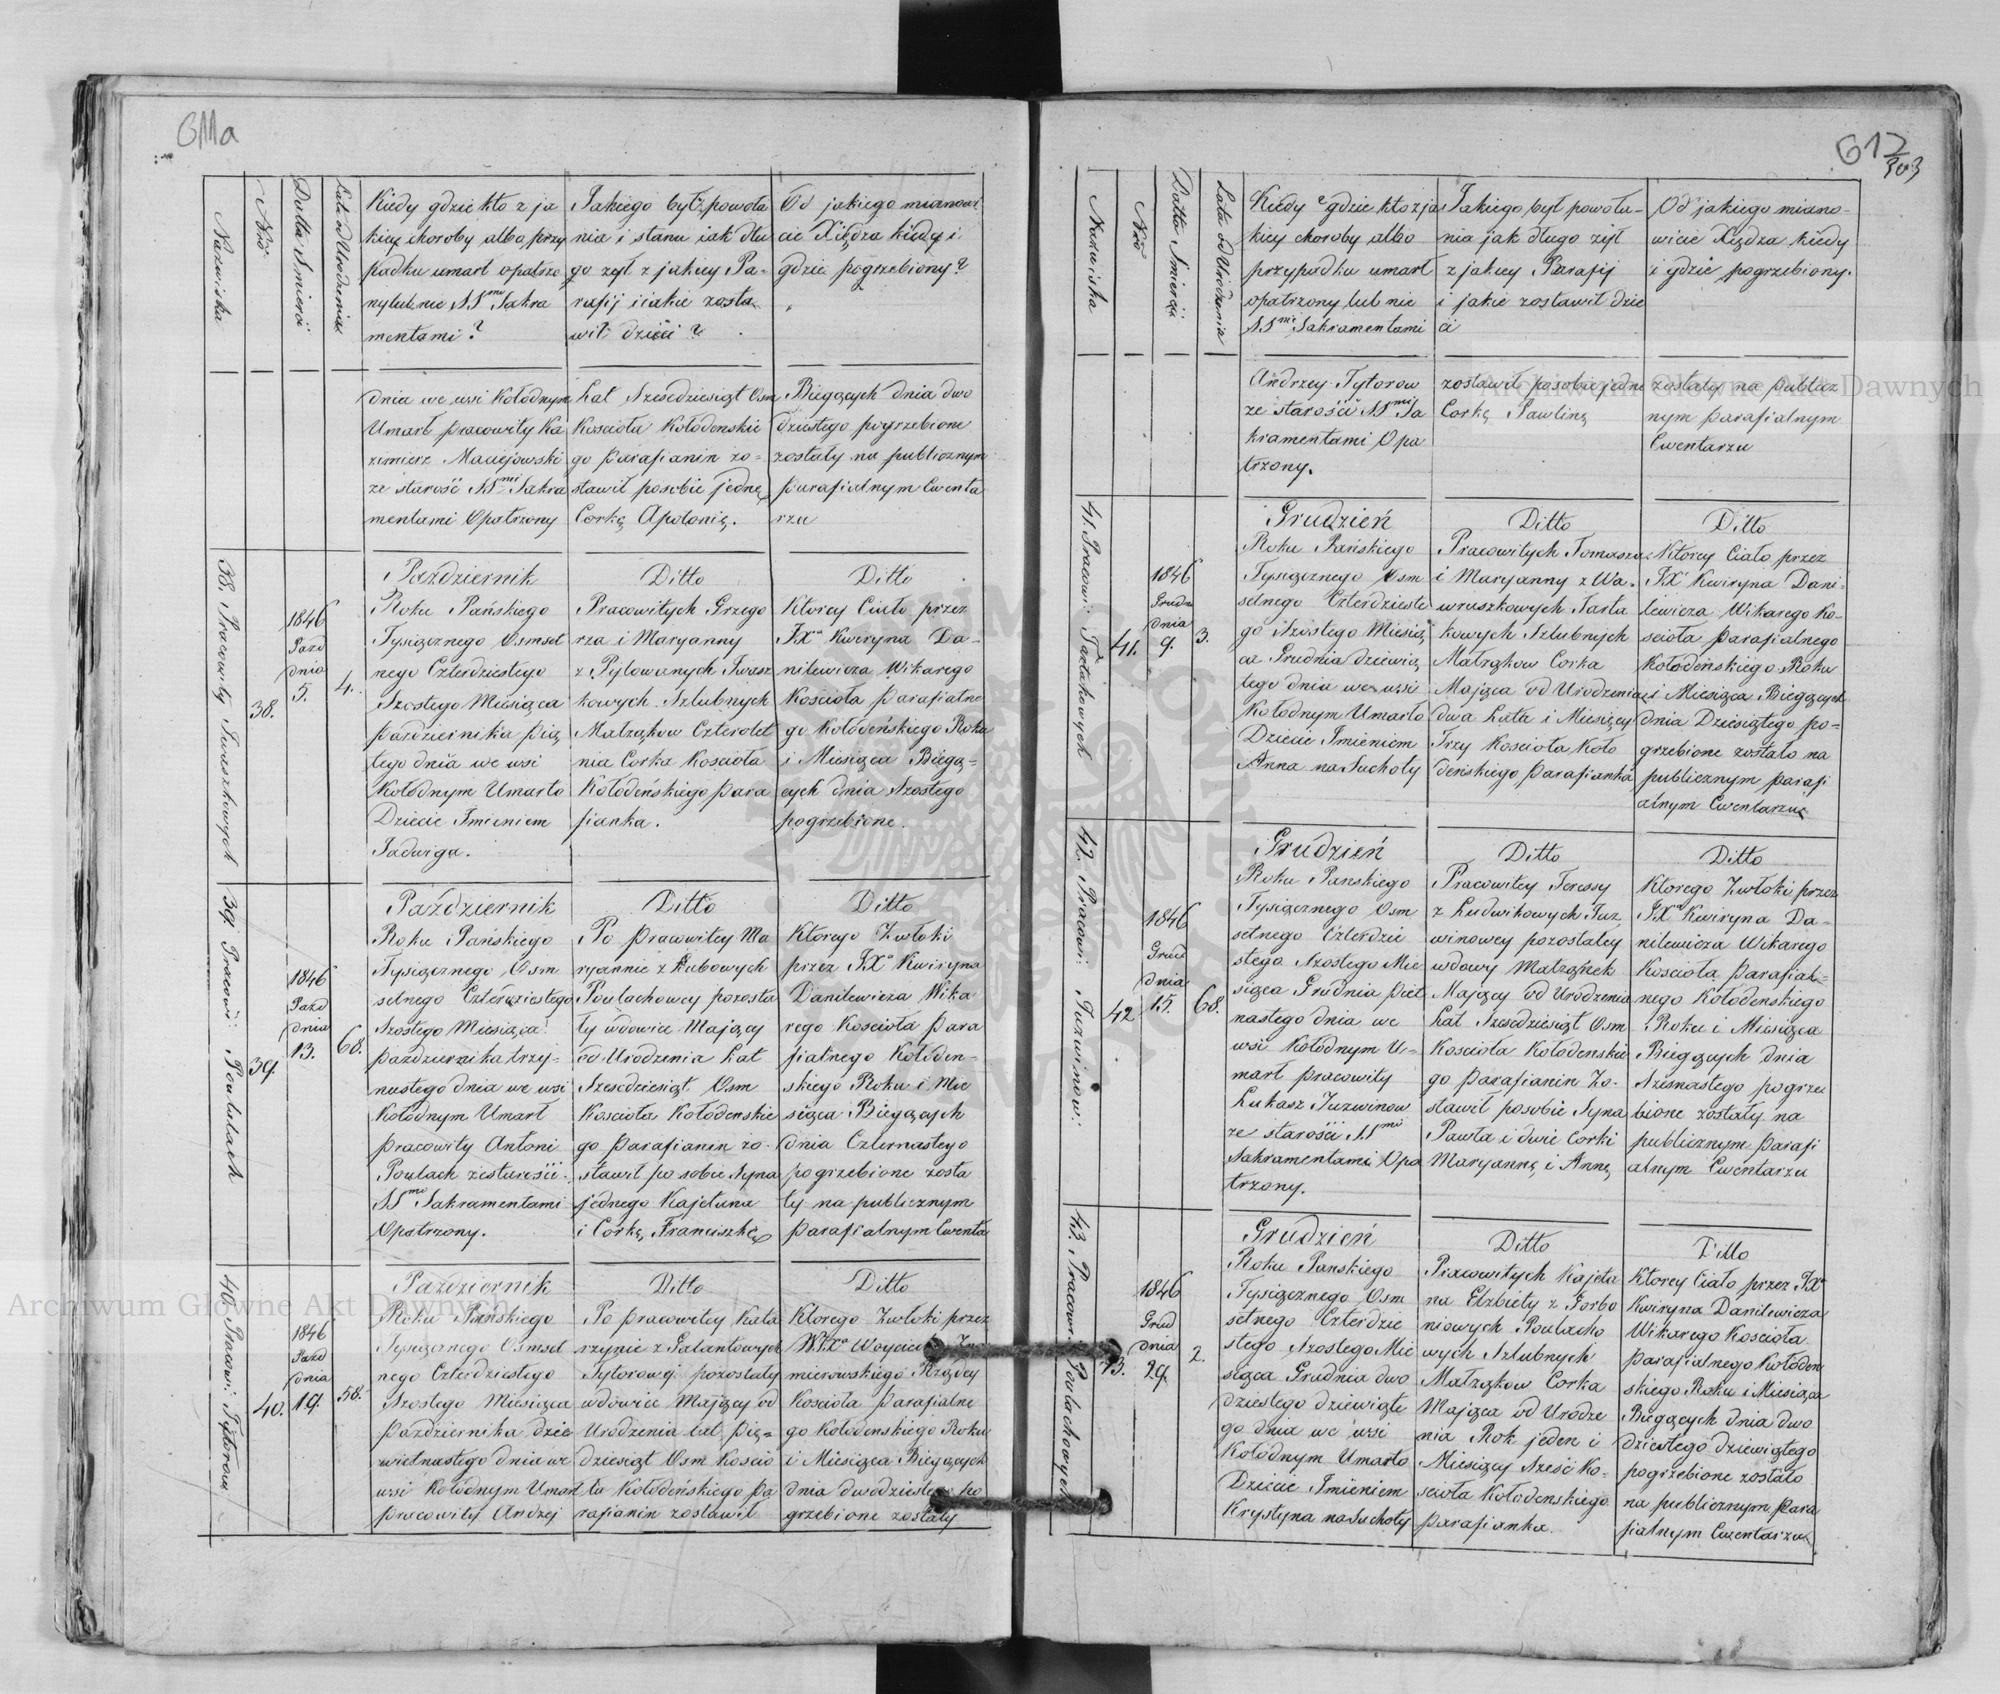 611a
Nazwiska
Nro
Datta Smierci
Lata od Urodzenia
Kiedy gdzie kto z ja
kiey choroby albo przy
padku umarł opatrzo
ny lub nie NNmi Sakra
mentami?
Jakiego był powoła
nia i stanu iak dłu
go zył z jakiey Pa-
rafij i iakie zosta
wił dzieci?
Od jakiego mianowi
cie Xiędza kiedy i
gdzie pogrzebiony?
dnia we wsi Kołodnym
Umarł pracowity Ka
zimierz Maciejowski
ze starość NNmi Sakra
mentami Opatrzony
Lat Szesdziesiąt Osm
Kościoła Kołodenskie
go parafianin zo-
stawił posobie jednę
Corkę Apolonię.
Biegących dnia dwo
dziestego pogrzebione
zostały na publicznym
parafialnym Cwenta
rzu
38. Pracowity Iwaszkowych
38.
1846
Pazd
dnia
5.
4.
Październik
Roku Pańskiego
Tysiącznego Osmset
nego Czterdziestego
Szostego Miesiąca
października pią
tego dnia we wsi
Kołodnym Umarło
Dziecie Imieniem
Jadwiga.
Ditto
Pracowitych Grzego
rza i Maryanny
z Pylowanych Iwasz
kowych Szlubnych
Małząkow Czterolet
nia Corka Kościoła
Kołodeńskiego para
fianka.
Ditto
Ktorey Ciało przez
JXa Kwiryna Da-
nilewicza Wikarego
Kościoła parafialne
go Kołodeńskiego Roku
i Miesiąca Biegą-
cych dnia Szostego
pogrzebione.
39. Pracowi: Poulach
39.
1846
Pazd
dnia
13.
68.
Październik
Roku Pańskiego
Tysiącznego Osm
setnego Czterdziestego
Szostego Miesiąca
października trzy-
nastego dnia we wsi
Kołodnym Umarł
pracowity Antoni
Poulach ze starości
NNmi Sakramentami
Opatrzony.
Ditto
Po pracowitey Ma
ryannie z Kubowych
Poulachowey pozosta
ły wdowiec Mający
od Urodzenia Lat
Szesdziesiąt Osm
Kosciola Kołodenskie
go parafianin zo-
stawił po sobie Syna
jednego Kajetana
i Corkę Franciszkę
Ditto
Ktorego Zwłoki
przez JXa Kwiryna
Danilewicza Wika
rego Kosciola para
fialnego Kołoden-
skiego Roku i Mie
siąca Biegących
dnia Czternastego
pogrzebione zosta
ły na publicznym
parafialnym Cwenta
40. Pracowi: Tytorow
40.
1846
Pazd
dnia
19.
58.
Październik
Roku Pańskiego
Tysiącznego Osmset
nego Czterdziestego
Szostego Miesiąca
października dzie
wietnastego dnia we
wsi Kołodnym Umarł
pracowity Andrzej
Ditto
Po pracowitey Kata
rzynie z Galantowych
Tytorowej pozostały
wdowiec Mający od
Urodzenia Lat pię-
dziesiąt Osm Koscio
ła Kołodeńskiego pa
rafianin zostawił
Ditto
Ktorego Zwłoki przez
WJXa Woyciecha
mierowskiego Rządcy
Kosciola parafialne
go Kołodenskiego Roku
i Miesiąca Biegących
dnia dwódziestego po
grzebione zostały
612
303
Nazwiska
Nro
Datta Smierci
Lata od Urodzenia
Kiedy gdzie kto z ja
kiey choroby albo
przypadku umarł
opatrzony lub nie
NNmi Sakramentami
Jakiego był powoła-
nia jak długo zył
z jakiey Parafij
i jakie zostawił dzie
ci
Od jakiego miano-
wicie Xiędza kiedy
i gdzie pogrzebiony.
Andrzey Tytorow
ze starości NNmi Sa
kramentami Opa
trzony.
zostawił posobie jedne
Corkę Pawlinę
zostały na publicz
nym parafialnym
Cwentarzu
41. Pracowi: Tartakowych
41.
1846
Grudn
dnia
9.
3.
Grudzień
Roku Pańskiego
Tysiącznego Osm
setnego Czterdzieste
go Szostego Miesią
ca Grudnia dziewią
tego dnia we wsi
Kołodnym Umarło
Dziecie Imieniem
Anna na Suchoty
Ditto
Pracowitych Tomasza
i Maryanny z Wa-
wruszkowych Tarta
kowych Szlubnych
Małząkow Corka
Mająca od Urodzenia
dwa Lata i Miesięcy
Trzy Kosciola Koło
deńskiego parafianka
Ditto
Ktorey Ciało przez
JXa Kwiryna Dani-
lewicza Wikarego Ko-
scioła parafialnego
Kołodeńskiego Roku
i Miesiąca Biegących
dnia Dziesiątego po-
grzebione zostało na
publicznym parafi
alnym Cwentarzu
42. Pracowi: Juzwinow:
42
1846
Grud
dnia
15.
68.
Grudzień
Roku Panskiego
Tysiącznego Osm
setnego Czterdzie
stego Szostego Mie
siąca Grudnia piet
nastego dnia we
wsi Kołodnym U-
marł pracowity
Łukasz Juzwinow
ze starości NNmi
Sakramentami Opa
trzony.
Ditto
Pracowitey Teressy
z Ludwikowych Juz
winowey pozostałey
wdowy Małzonek
Mający od Urodzenia
Lat Szesdziesiąt Osm
Kosciola Kołodenskie
go parafianin Zo-
stawił posobie Syna
Pawła i dwie Corki
Maryannę i Annę
Ditto
Ktorego Zwłoki przez
JXa Kwiryna Da-
nilewicza Wikarego
Kosciola parafial-
nego Kołodenskiego
Roku i Miesiąca
Biegących dnia
Szesnastego pogrze
bione zostały na
publicznym parafi
alnym Cwentarzu
43. Pracowi: Poulachowych
43.
1846
Grud
dnia
29.
2.
Grudzień
Roku Panskiego
Tysiącznego Osm
setnego Czterdzie
stego Szostego Mie
siąca Grudnia dwo
dziestego dziewiąte
go dnia we wsi
Kołodnym Umarło
Dziecie Imieniem
Krystyna na Suchoty
Ditto
Pracowitych Kajeta
na Elzbiety z Gorbo
niowych Poulacho
wych Szlubnych
Małząkow Corka
Mająca od Urodze
nia Rok jeden i
Miesięcy Sześć Ko-
scioła Kołodenskiego
parafianka.
Ditto
Ktorey Ciało przez JXa
Kwiryna Danilewicza
Wikarego Kosciola
parafialnego Kołoden
skiego Roku i Miesiąca
Biegących dnia dwo
dziestego dziewiątego
pogrzebione zostało
na publicznym para
fialnym Cwentarzu
Archiwum Główne Akt Dawnych
Archiwum Główne Akt Dawnych